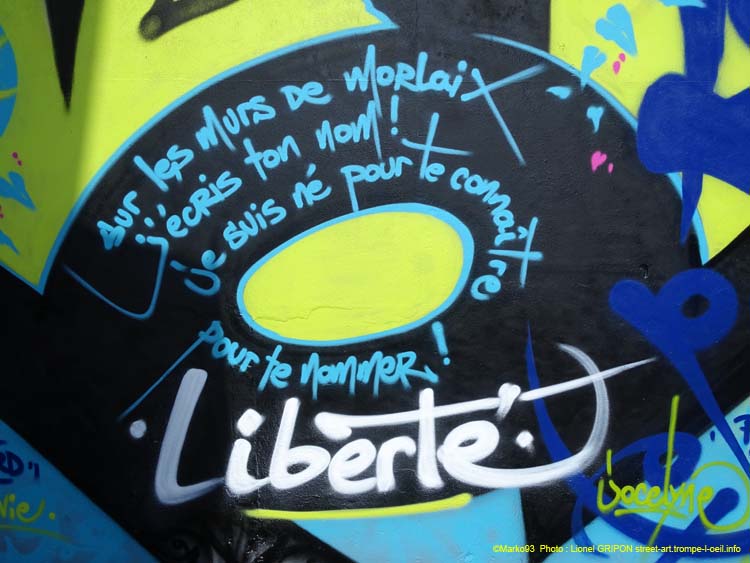 sur les murs de Morlaix
j'écris ton nom!
je suis né pour te connaître
pour te nommer!
Liberté
Jocelyne
©Marko93 Photo : Lionel GRIPON street-art.trompe-l-oeil.info